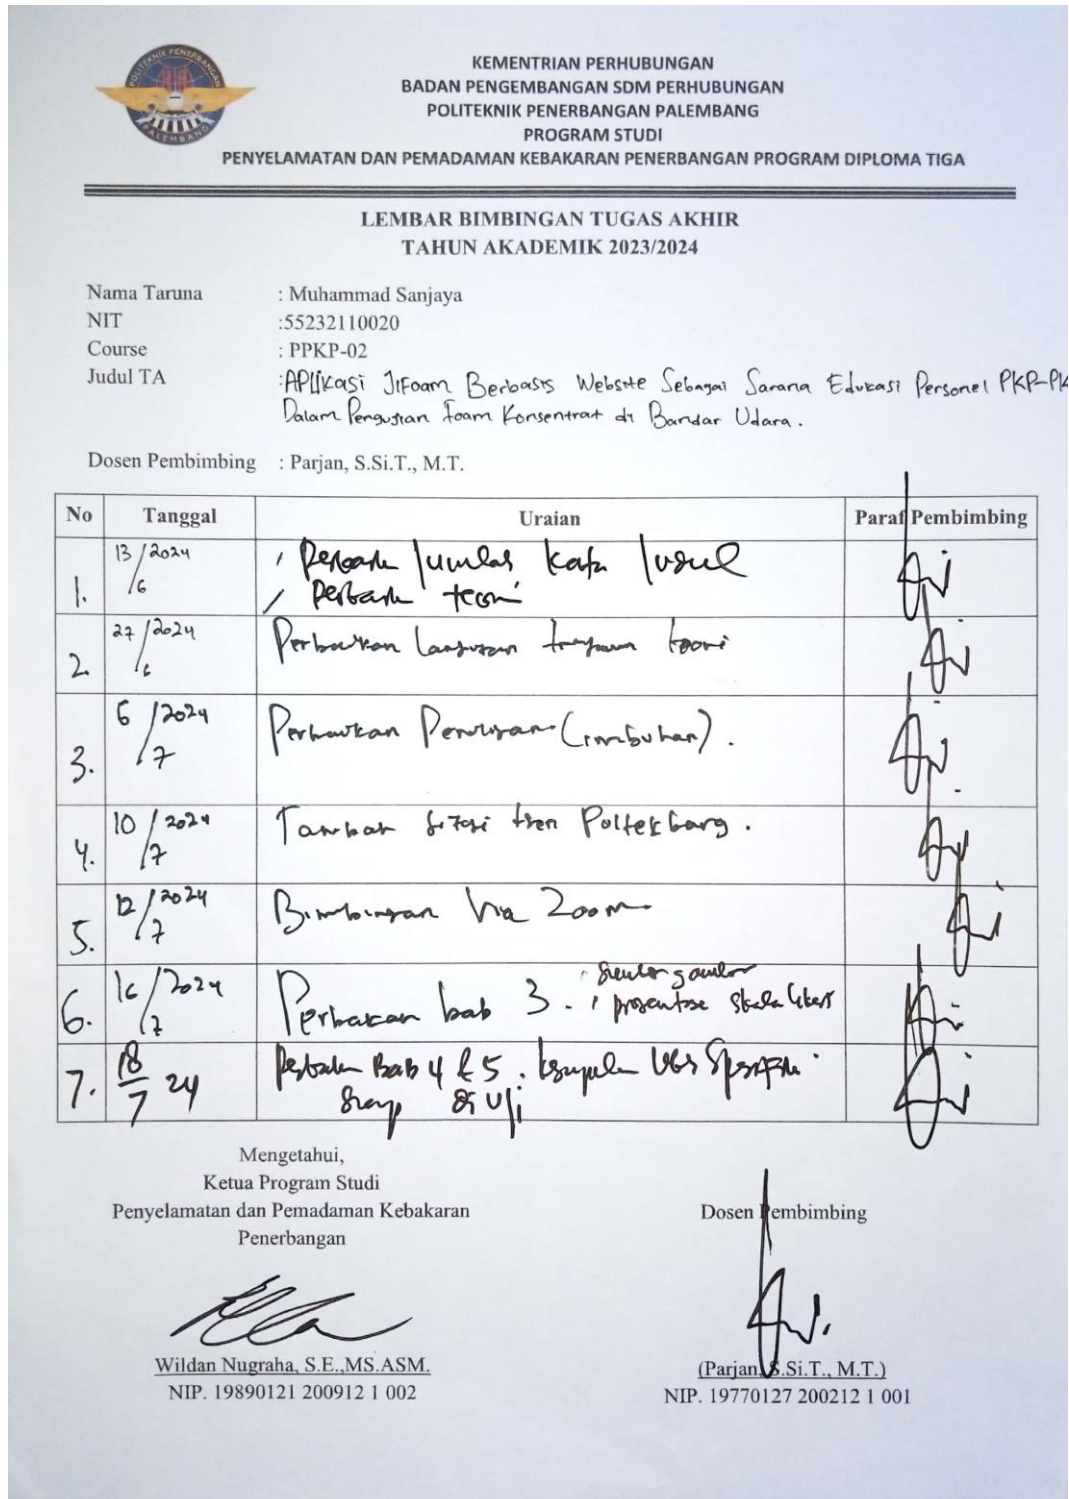 POLITEKNIK PENERBANGAN
PALEMBANG
KEMENTRIAN PERHUBUNGAN
BADAN PENGEMBANGAN SDM PERHUBUNGAN
POLITEKNIK PENERBANGAN PALEMBANG
PROGRAM STUDI
PENYELAMATAN DAN PEMADAMAN KEBAKARAN PENERBANGAN PROGRAM DIPLOMA TIGA
LEMBAR BIMBINGAN TUGAS AKHIR
TAHUN AKADEMIK 2023/2024
Nama Taruna : Muhammad Sanjaya
NIT :55232110020
Course : PPKP-02
Judul TA :Aplikasi JiFoam Berbasis Website Sebagai Sarana Edukasi Personel PKP-PK
Dalam Pengujian Foam Konsentrat di Bandar Udara.
Dosen Pembimbing : Parjan, S.Si.T., M.T.
No Tanggal Uraian Paraf Pembimbing
1. 13/6/2024 Jumlah kata Judul
teori
2. 27/6/2024 Perbaikan teori
3. 6/7/2024 Perbaikan Penulisan (imbuhan).
4. 10/7/2024 Tambah sitasi Poltekbang.
5. 12/7/2024 Bimbingan Via Zoom
6. 16/7/2024 bab 3. gambar
skala likert
7. 18/7 24 Bab 4 & 5.
di Uji
Mengetahui,
Ketua Program Studi
Penyelamatan dan Pemadaman Kebakaran
Penerbangan
Dosen Pembimbing
Wildan Nugraha, S.E.,MS.ASM.
NIP. 19890121 200912 1 002
(Parjan, S.Si.T., M.T.)
NIP. 19770127 200212 1 001